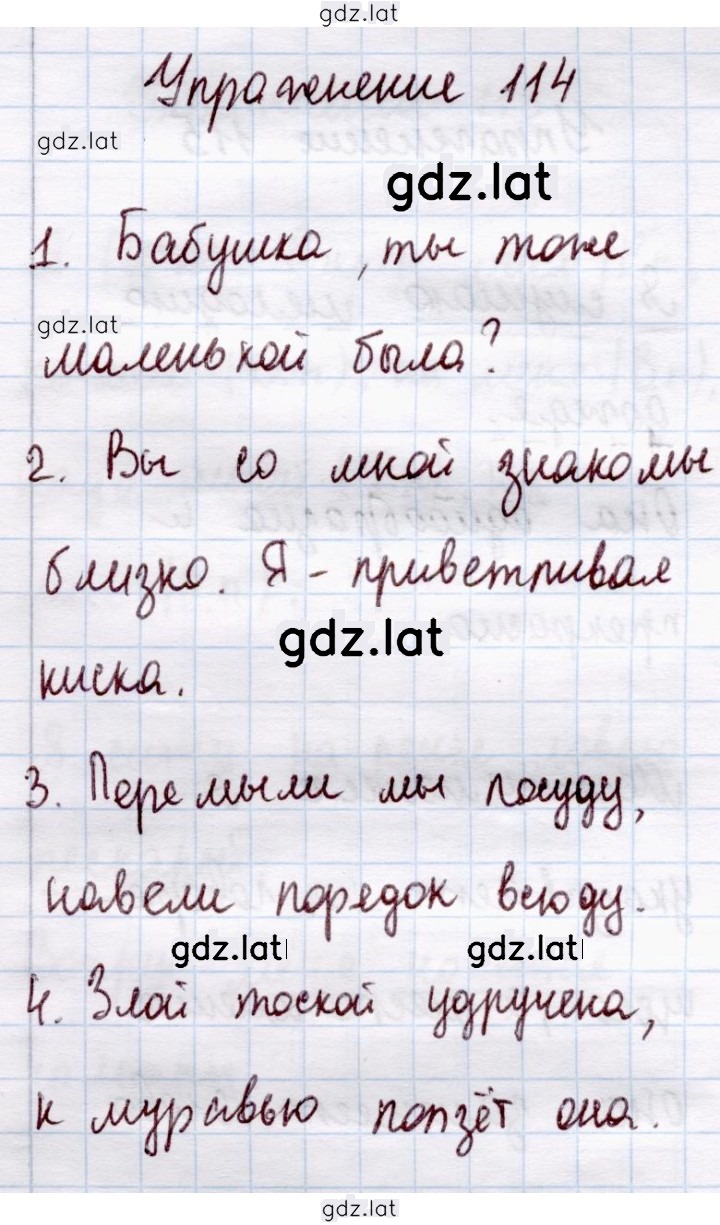 gdz.lat
Упражнение 114
gdz.lat
gdz.lat
1. Бабушка, ты тоже
gdz.lat
маленькой была?
2. Вы со мной знакомы
близко. Я - приветливая
gdz.lat
киска.
3. Перемыли мы посуду,
навели порядок всюду.
gdz.lat gdz.lat
4. Злой тоской удручена,
к муравью ползёт она.
gdz.lat